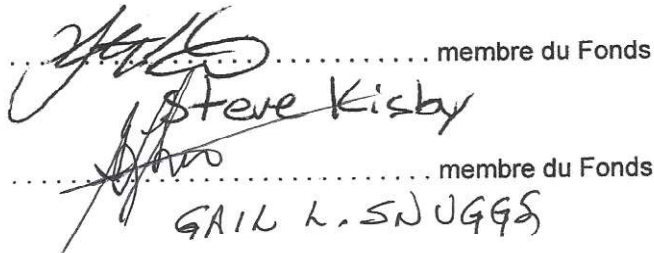 ........................................ membre du Fonds
Steve Kisby
........................................ membre du Fonds
GAIL L. SNUGGS